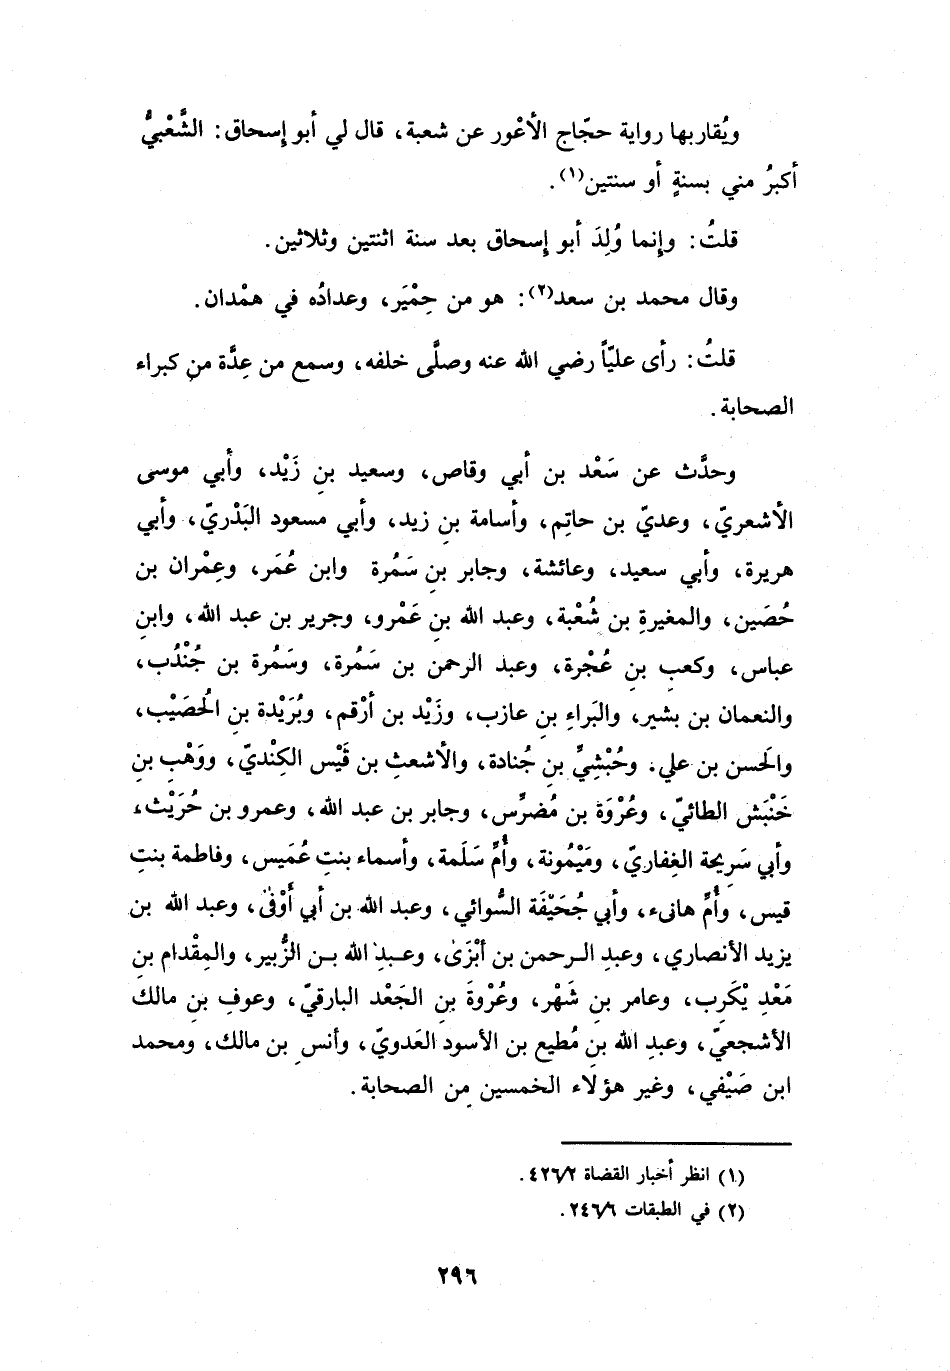 ويُقاربها رواية حجّاج الأعْور عن شعبة، قال لي أبو إسحاق: الشَّعْبيُّ
أكبرُ مني بسنةٍ أو سنتين(١).
قلتُ: وإنما وُلِدَ أبو إسحاق بعد سنة اثنتين وثلاثين.
وقال محمد بن سعد(٢): هو من حِمْيَر، وعدادُه في همْدان.
قلتُ: رأى عليّاً رضي الله عنه وصلَّى خلفه، وسمع من عِدَّة من كبراء
الصحابة.
وحدَّث عن سَعْد بن أبي وقاص، وسعيد بنِ زَيْد، وأبي موسى
الأشعريّ، وعديّ بن حاتِم، وأسامة بنِ زيد، وأبي مسعود البَدْريّ، وأبي
هريرة، وأبي سعيد، وعائشة، وجابر بنِ سَمُرة وابن عُمَر، وعِمْران بن
حُصَين، والمغيرةِ بن شُعْبة، وعبد الله بنِ عَمْرو، وجرير بن عبد الله، وابنِ
عباس، وكعبِ بنِ عُجْرة، وعبد الرحمن بن سَمُرة، وسَمُرة بن جُنْدُب،
والنعمان بن بشير، والبَراءِ بنِ عازب، وزَيْد بن أرْقم، وبُرَيْدة بنِ الحُصَيْب،
والحسن بن علي. وحُبْشِيِّ بنِ جُنادة، والأشعثِ بن قَيْس الكِنْديّ، ووَهْبِ بنِ
خَنْبَش الطائيّ، وعُرْوَة بن مُضرِّس، وجابر بن عبد الله، وعمرو بن حُرَيْث،
وأبي سَرِيحة الغِفاريّ، ومَيْمُونة، وأُمِّ سَلَمة، وأسماء بنتِ عُمَيس، وفاطمة بنتِ
قيس، وأُمِّ هانىء، وأبي جُحَيْفَة السُّوائي، وعبد الله بن أبي أَوْفىٰ، وعبد الله بن
يزيد الأنصاري، وعبدِ الرحمن بن أبْزَىٰ، وعبدِ الله بن الزُّبير، والمِقْدام بنِ
مَعْدِ يْكَرِب، وعامر بنِ شَهْر، وعُرْوةَ بنِ الجَعْد البارقيّ، وعوفِ بنِ مالك
الأشجعيّ، وعبدِ الله بنِ مُطيع بن الأسود العَدويّ، وأنس بن مالك، ومحمد
ابن صَيْفي، وغير هؤلاء الخمسين مِن الصحابة.
(١) انظر أخبار القضاة ٤٢٦/٢.
(٢) في الطبقات ٢٤٦/٦.
٢٩٦